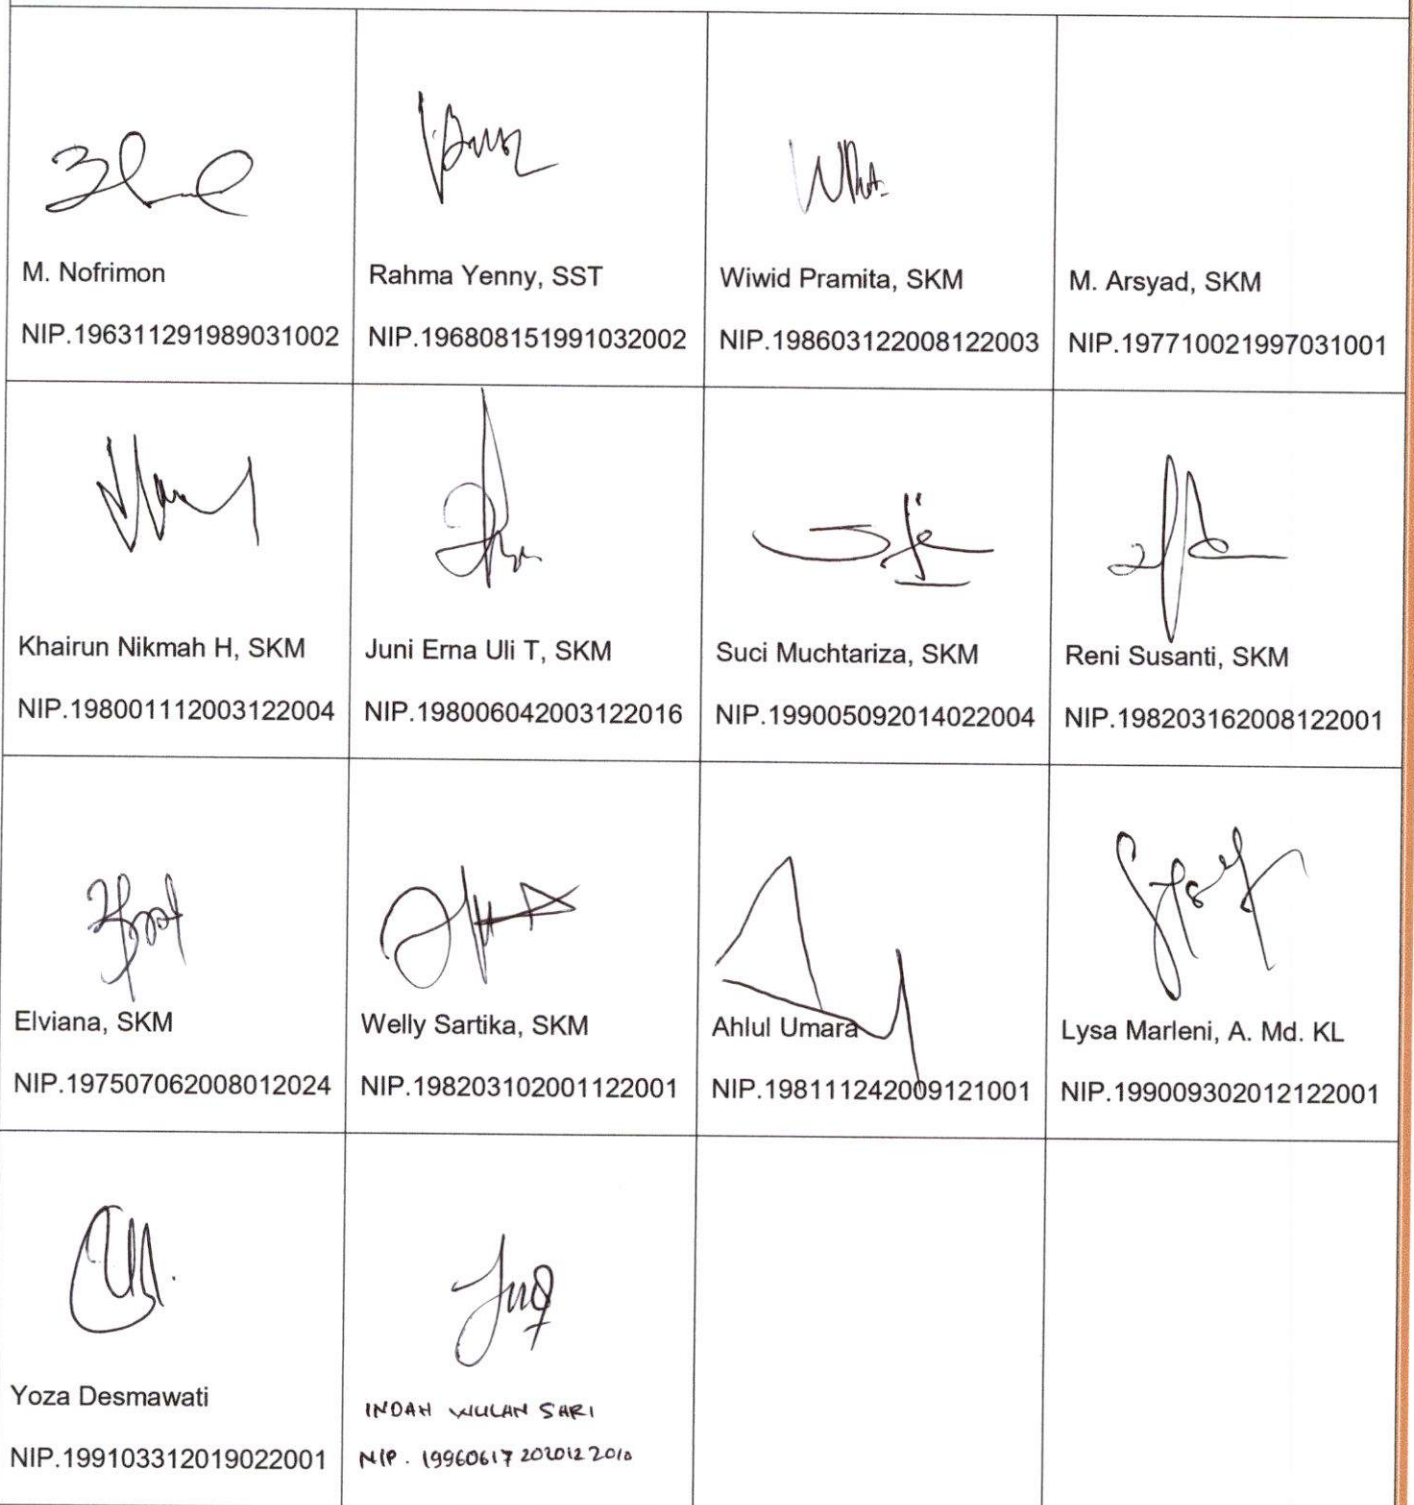 M. Nofrimon
NIP.196311291989031002
Rahma Yenny, SST
NIP.196808151991032002
Wiwid Pramita, SKM
NIP.198603122008122003
M. Arsyad, SKM
NIP.197710021997031001
Khairun Nikmah H, SKM
NIP.198001112003122004
Juni Erna Uli T, SKM
NIP.198006042003122016
Suci Muchtariza, SKM
NIP.199005092014022004
Reni Susanti, SKM
NIP.198203162008122001
Elviana, SKM
NIP.197507062008012024
Welly Sartika, SKM
NIP.198203102001122001
Ahlul Umara
NIP.198111242009121001
Lysa Marleni, A. Md. KL
NIP.199009302012122001
Yoza Desmawati
NIP.199103312019022001
INDAH WULAN SARI
NIP. 199606172020122010